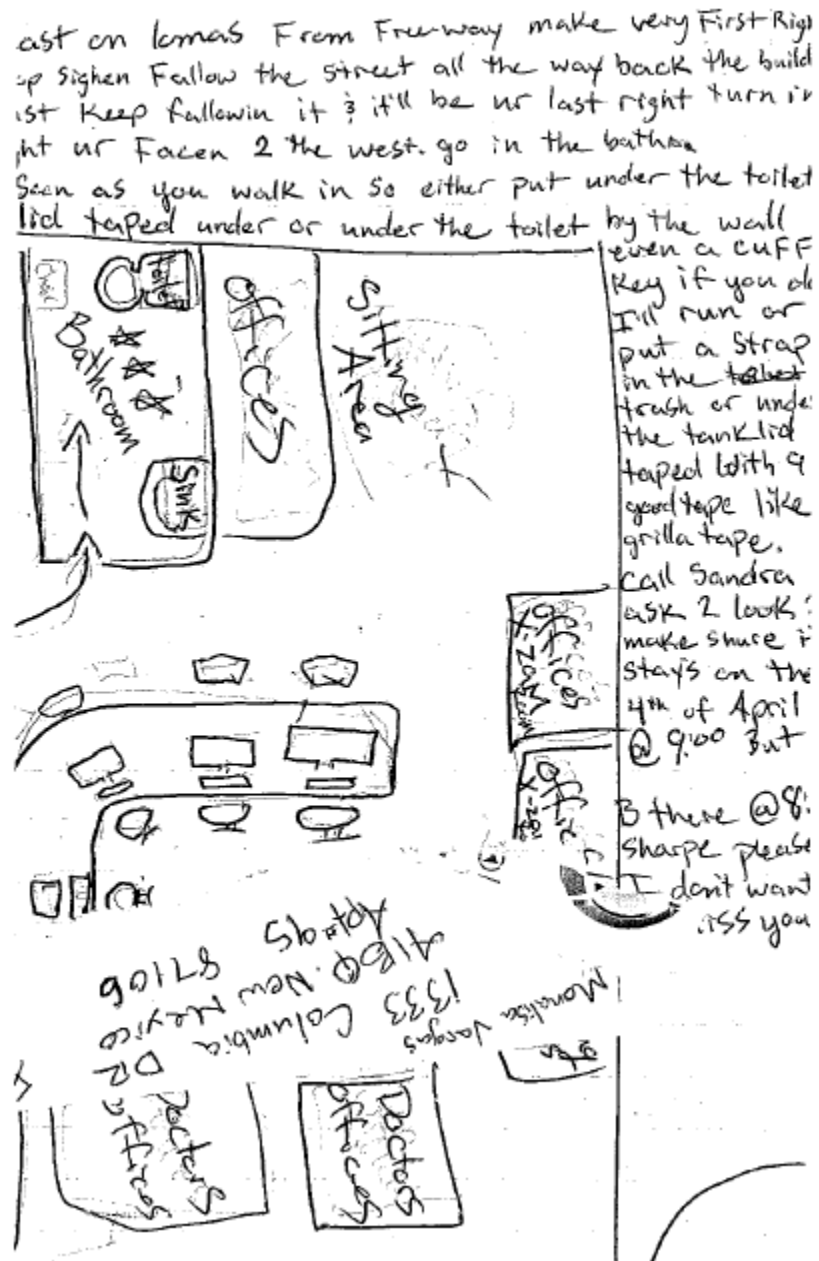 ast on lomas From Freeway make very First Righ
op Sighen Fallow the street all the way back the build
ust Keep fallowin it & it'll be ur last right turn in
ht ur Facen 2 the west. go in the bathroo
Seen as you walk in So either put under the toilet
lid taped under or under the toilet by the wall
even a cuFF
Key if you do
I'll run or
put a Strap
in the
trash or unde
the tank lid
taped With a
good tape like
grilla tape.
Call Sandra
ask 2 look
make shure i
stays on the
4th of April
@ 9:00 But
B there @ 8:
sharpe please
I don't want
iss you
toilet
Bathroom
Sink
offices
Sitting
Area
offices
offic
Monalisa Vargas
1333 Columbia DR
AlBQ. New Mexico
Apt# 95 87106
Doctors
offices
Doctors
offices